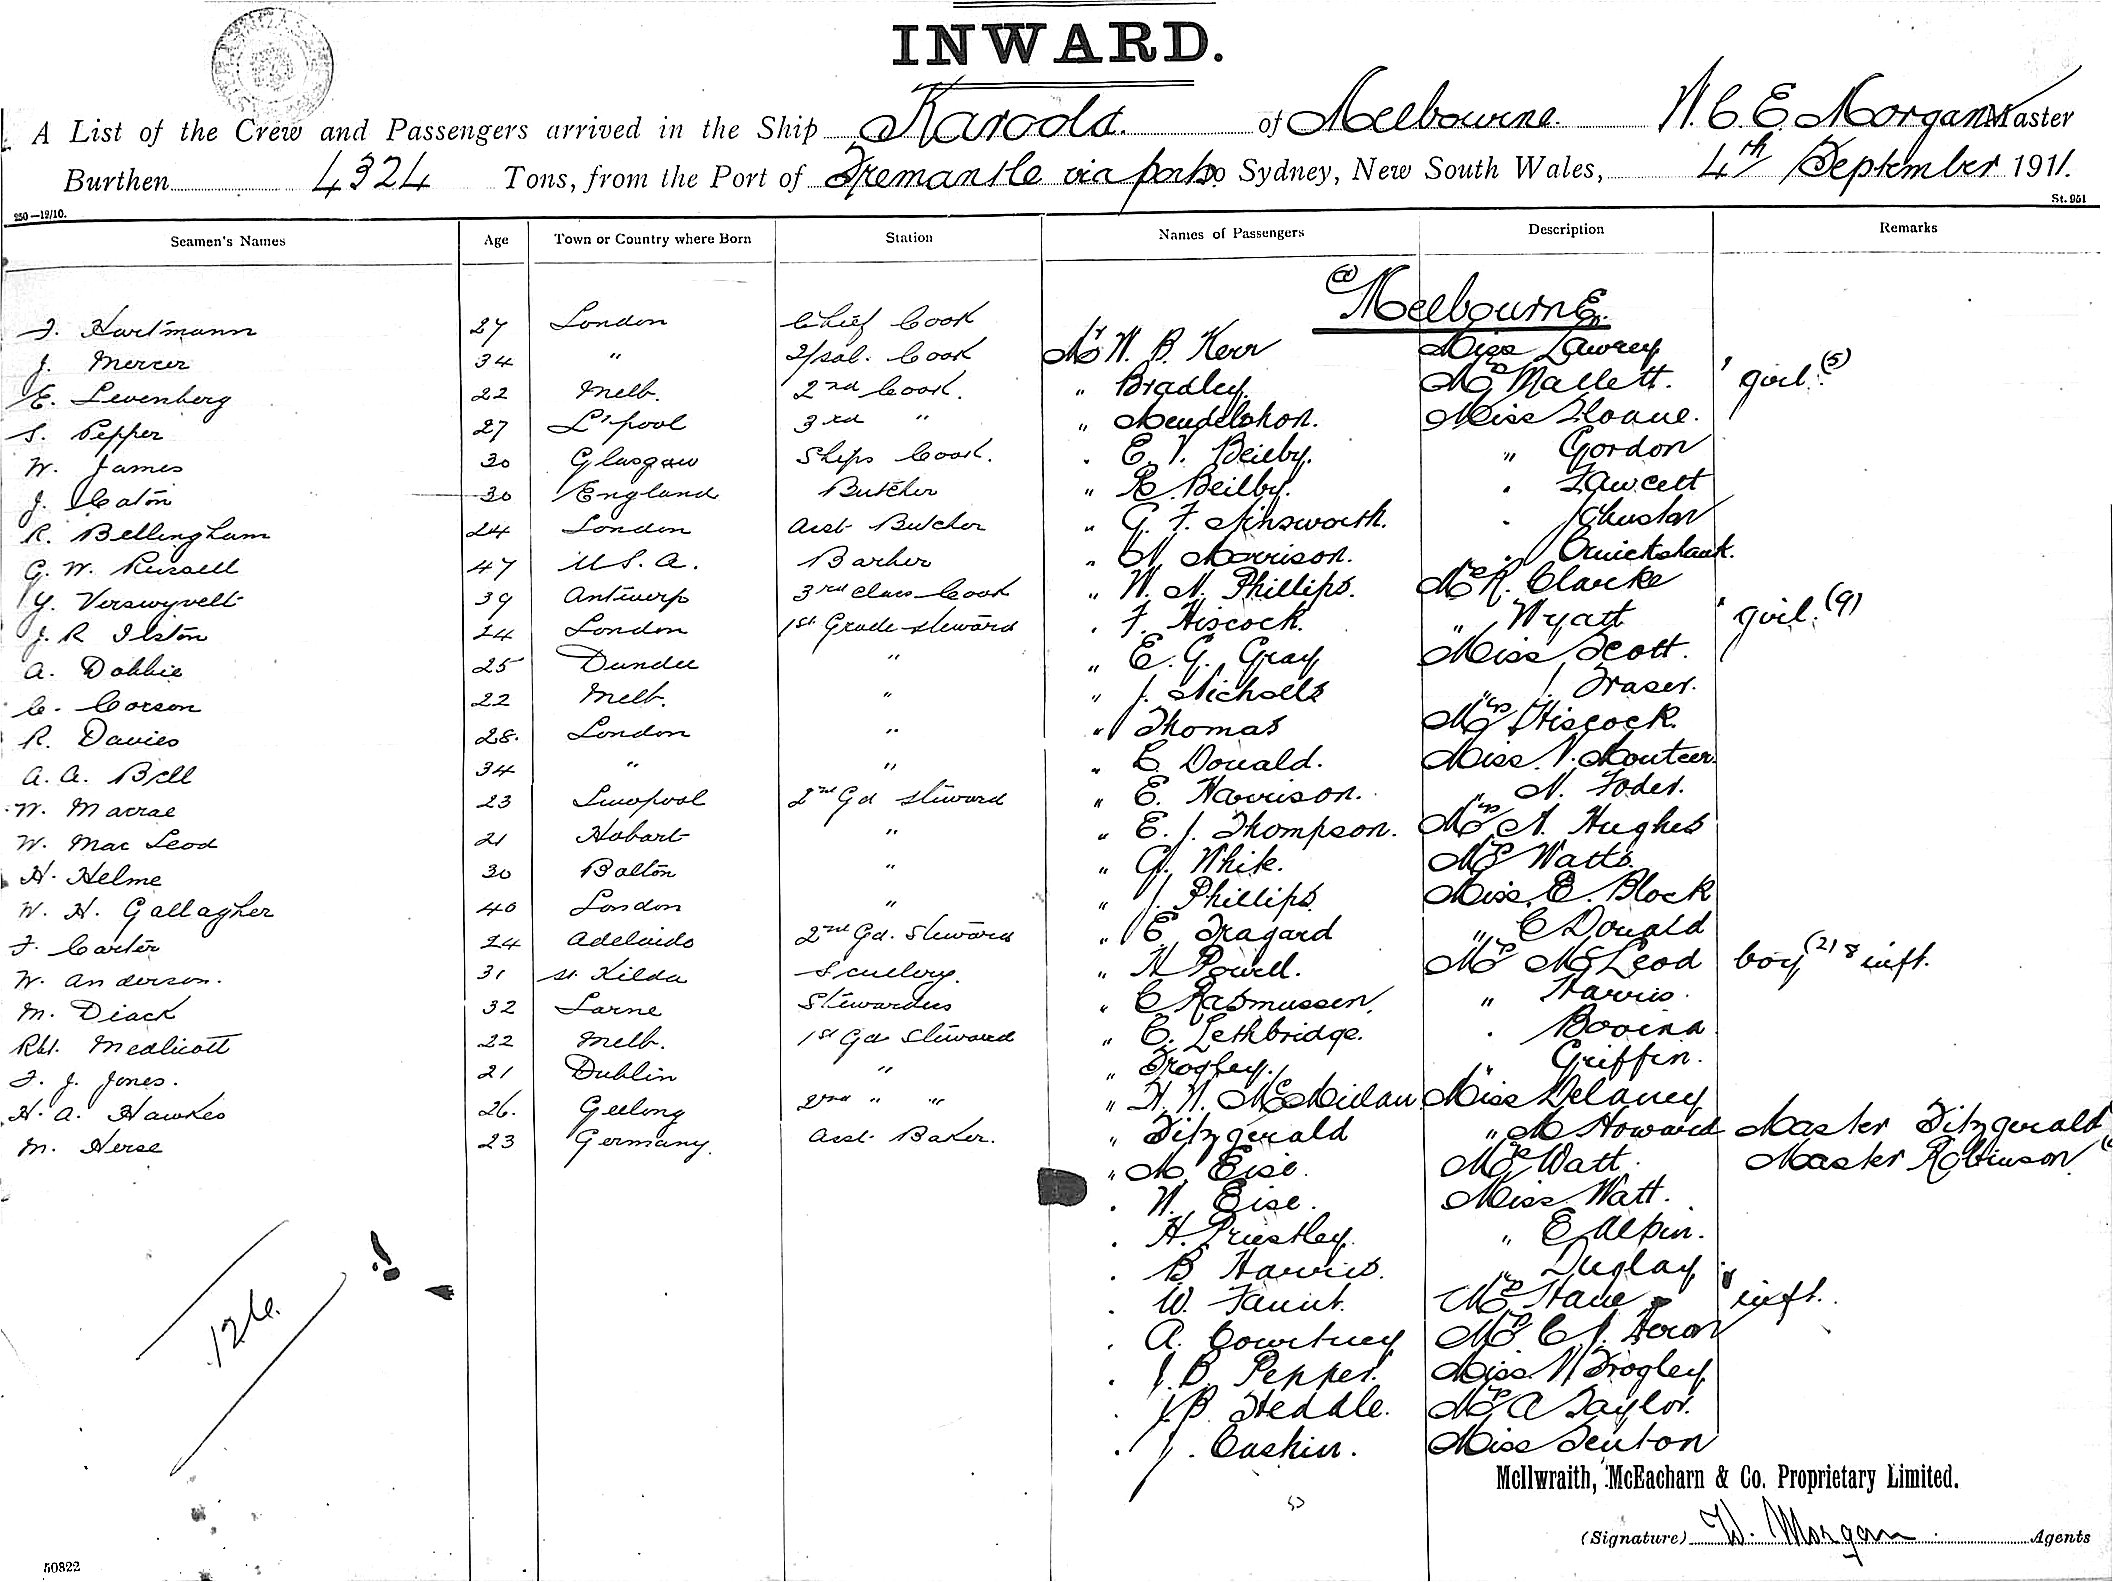 INWARD.
A List of the Crew and Passengers arrived in the Ship Karoola. of Melbourne. W. C. E. Morgan Master
Burthen 4324 Tons, from the Port of Fremantle via ports to Sydney, New South Wales, 4th September 1911.
250—12/10. St. 951
Seamen's Names Age Town or Country where Born Station Names of Passengers Description Remarks
@ Melbourne.
F. Hartmann 27 London Chief Cook
J. Mercer 34 " 2/sal. Cook
E. Levenberg 22 Melb. 2nd Cook.
S. Pepper 27 L'pool 3rd "
W. James 30 Glasgow Ships Cook.
J. Caton 30 England Butcher
R. Bellingham 24 London Asst Butcher
G. W. Russell 47 U.S.A. Barber
Y. Verswyvelt 39 Antwerp 3rd Class Cook
J. R Ilston 24 London 1st Grade Steward
A. Dobbie 25 Dundee "
C. Corson 22 Melb. "
R. Davies 28. London "
A. A. Bell 34 " "
W. Macrae 23 Liverpool 2nd Gd Steward
W. Mac Leod 21 Hobart "
H. Helme 30 Bolton "
W. H. Gallagher 40 London "
F. Carter 24 Adelaide 2nd Gd. Steward
W. Anderson. 31 St. Kilda Scullery.
M. Diack 32 Larne Stewardess
Rbt. Medlicott 22 Melb. 1st Gd Steward
F. J. Jones. 21 Dublin "
H. A. Hawkes 26. Geelong 2nd " "
M. Herse 23 Germany. Asst. Baker.
126.
Mr W. B. Kerr Miss Lawrey
" Bradley. Mrs Mallett. girl. (5)
" Mendelshon. Miss Sloane.
. E. V. Beilby. " Gordon
" R. Beilby. . Fawcett
" G. F. Ainsworth. .
" N. Morrison. . Cruickshank.
" W. N. Phillips. Mrs R. Clarke
. F. Hiscock. " Wyatt girl. (9)
" E. G. Gray Miss Scott.
" J. Nicholls " J. Fraser.
" Thomas Mrs Hiscock.
" C. Donald. Miss V. Monteer.
" E. Harrison. " N. Foder.
" E. J. Thompson. Mrs A. Hughes
" G. White. Mrs Watts.
" J. Phillips. Miss. E. Block
" E. Tragard " C Donald
" H Powell. Mrs McLeod boy (2) & inft.
" C Rasmussen. " Harris.
" C. Lethbridge. .
" Trogley. " Griffin.
" H. W. McMillan Miss Delaney
" Fitzgerald " M Howard Master Fitzgerald
" M. Eise. Mrs Watt. Master Robinson.
. W. Eise. Miss Watt.
. H. Priestley. " E Alpin.
. B. Harris. "
. W. Faunt. Mrs Hane inft.
. A. Courtney Mrs C. J. Heron
. J. B. Pepper. Miss. N Trogley
. J. B. Heddle. Mrs A Taylor.
. J. Caskin. Miss Fenton
McIlwraith, McEacharn & Co. Proprietary Limited.
(Signature) W. Morgan Agents
50822